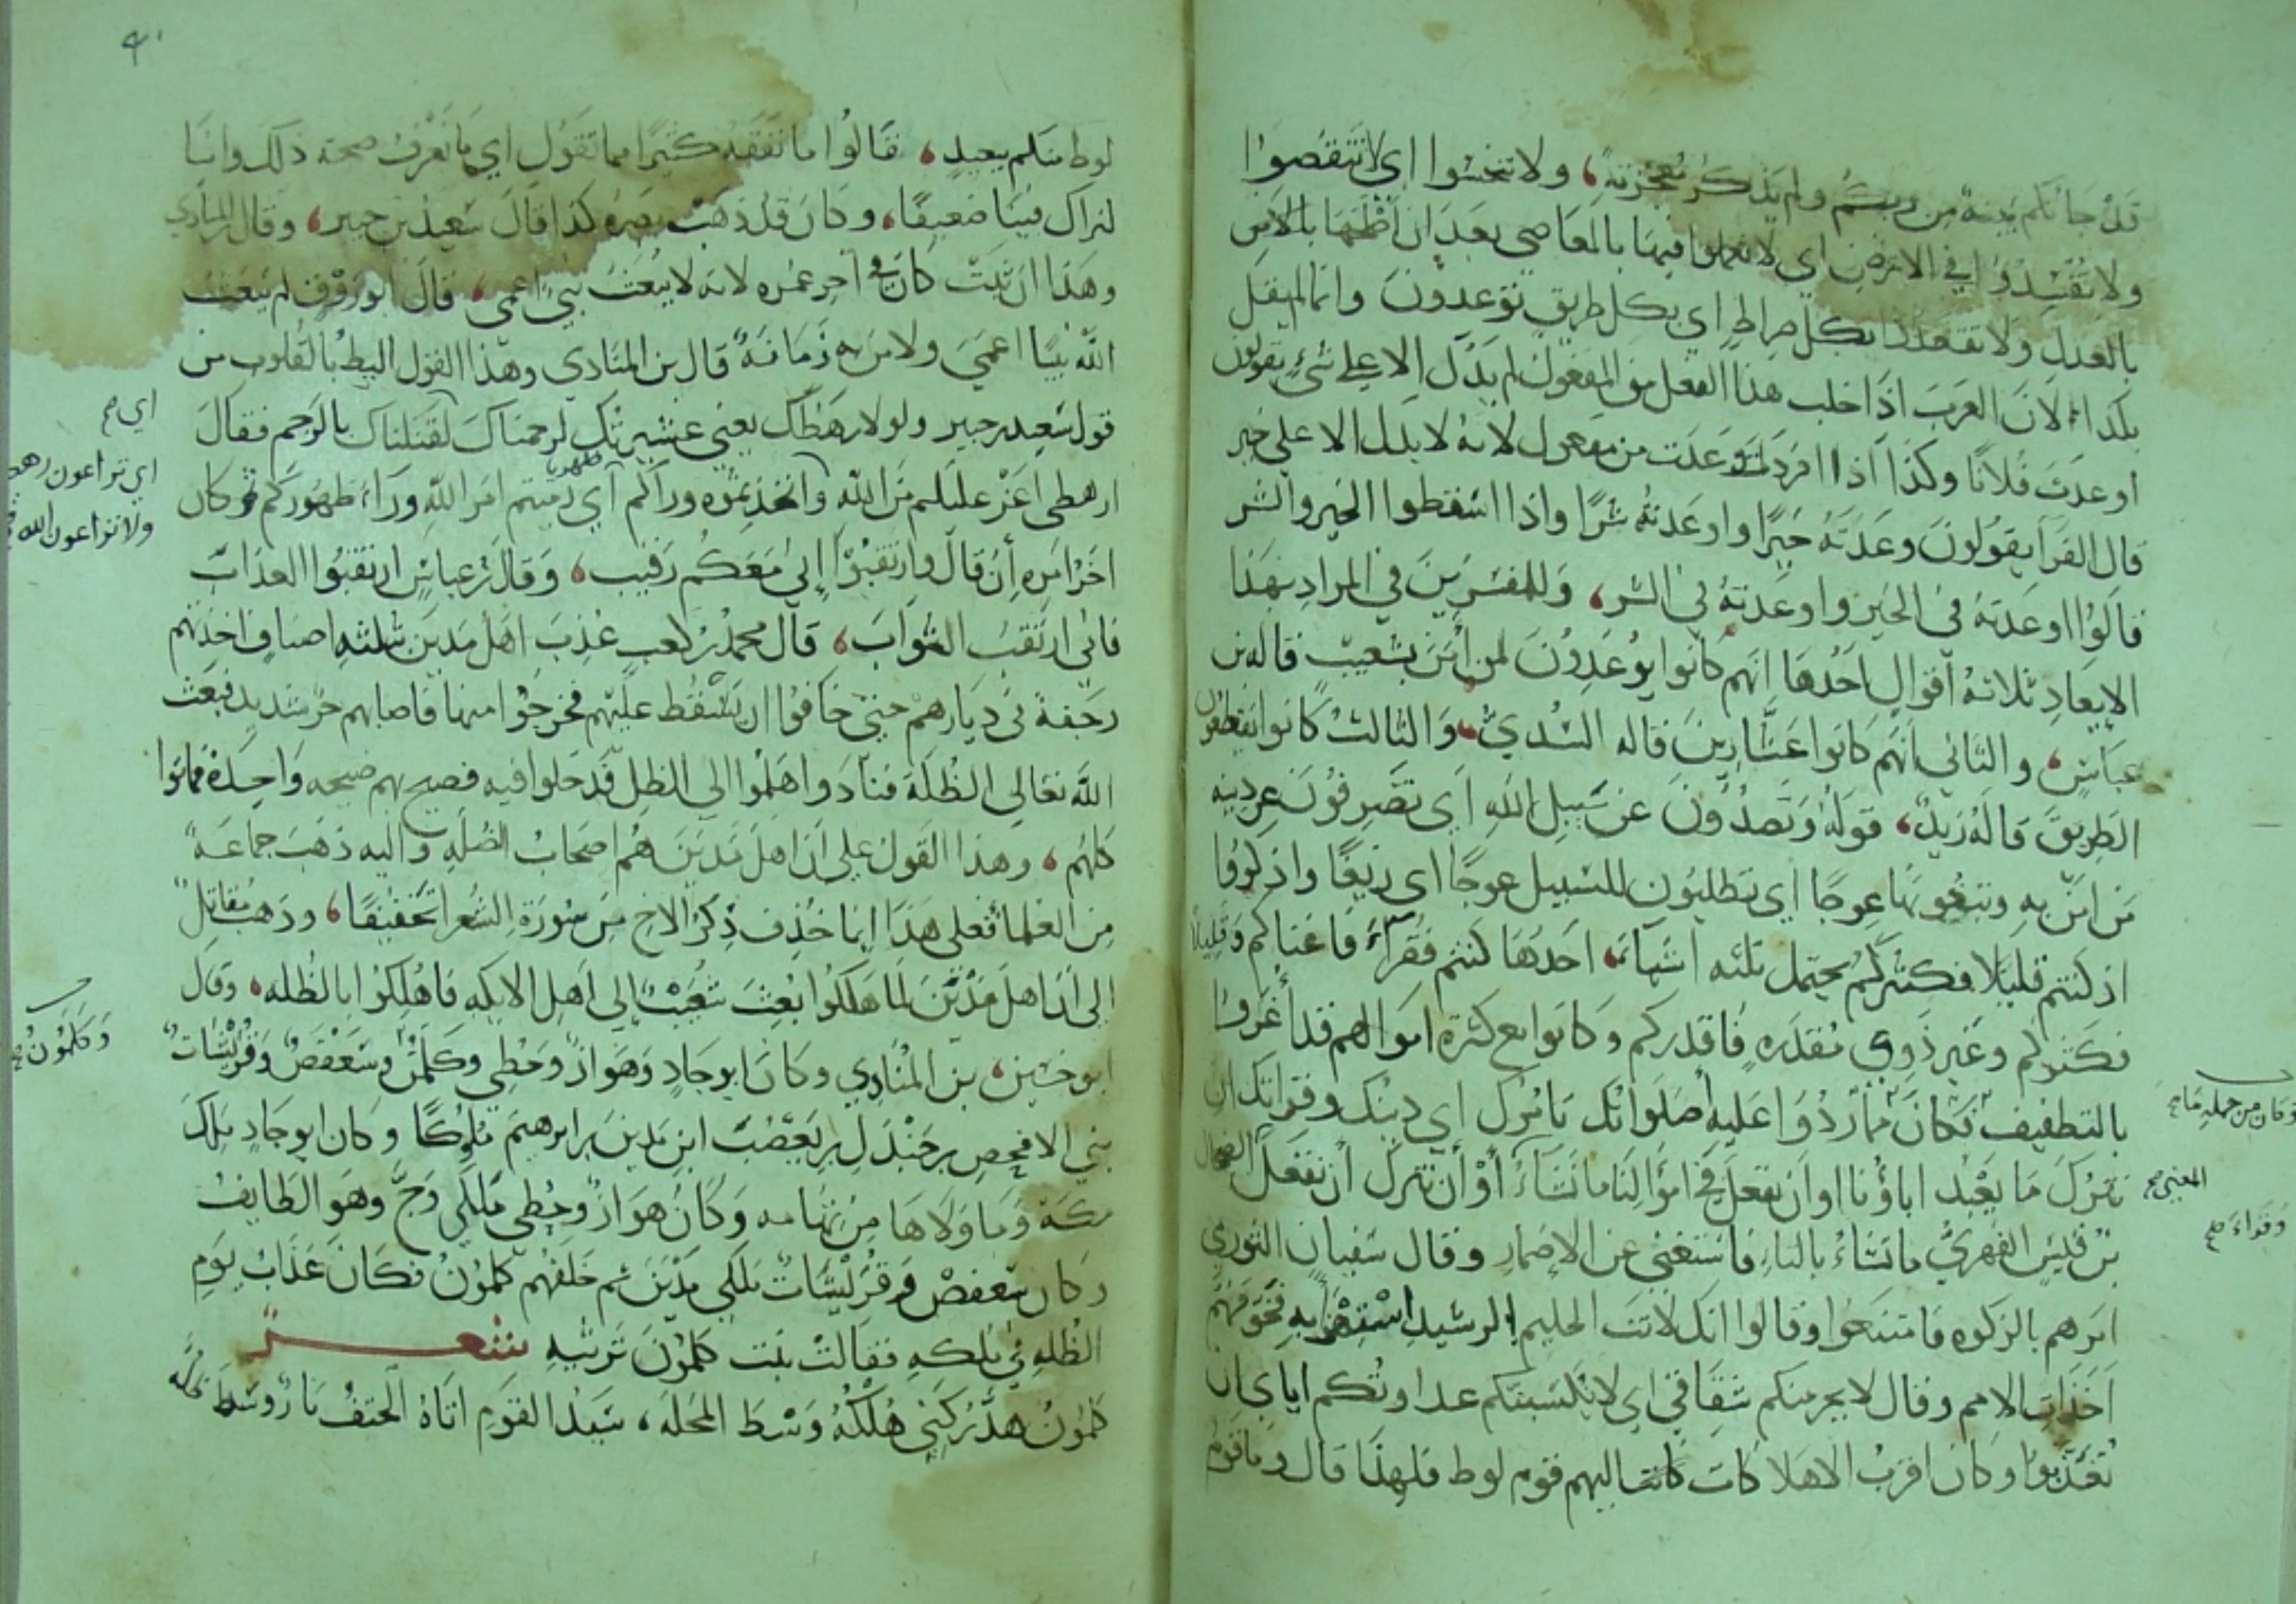 قد جائكم بينة من ربكم ولم يذكر معجزته، ولا تبخسوا اي لا تنقصوا
ولا تفسدوا في الارض اي لا تعملوا فيها بالمعاصي بعد ان اصلحها بالامر
بالعدل ولا تقعدوا بكل صراط اي بكل طريق توعدون وانما لم يقل
بكذا لان العرب اذا اخلت هذا الفعل من المفعول لم يدل الا على شيء يقولون
اوعدت فلانا وكذا اذا افردت وعدت من مفعول لانه لا يدل الا على خير
قال الفرا يقولون وعدته خيرا واوعدته شرا واذا اسقطوا الخير والشر
قالوا وعدته في الخير واوعدته في الشر، وللمفسرين في المراد بهذا
الايعاد ثلاثة اقوال احدها انهم كانوا يوعدون لمن امن بشعيب قاله بن
عباس، والثاني انهم كانوا عشارين قاله السدي، والثالث كانوا يقطعون
الطريق قاله زيد، قوله وتصدون عن سبيل الله اي تصرفون عن دينه
من امن به وتبغونها عوجا اي تطلبون للسبيل عوجا اي زيغا واذكروا
اذ كنتم قليلا فكثركم يحتمل ثلثه اشياء، احدها كنتم فقراء فاغناكم وقليلا
فكثركم وغير ذوي مقدره فاقدركم وكانوا مع كثرة اموالهم قد اغروا
بالتطفيف فكان مما ردوا عليه اصلواتك تامرك اي دينك وقراتك ان
وكان من جمله ما صح
نترك ما يعبد اباؤنا او ان نفعل في اموالنا ما نشاء او ان نترك ان نفعل
المعنى صح
وقراء صح
الضحاك
بن قيس الفهري ما تشاء بالتاء فاستغنى عن الاضمار وقال سفيان الثوري
امرهم بالزكوه فامتنعوا وقالوا انك لانت الحليم الرشيد استهزاء به فخوفهم
اخذات الامم وقال لا يجرمنكم شقاقي اي لا يكسبنكم عداوتكم اياي ان
تعذبوا وكان اقرب الاهلاكات كانت اليهم قوم لوط فلهذا قال وما قوم
٩٠
لوط منكم ببعيد، قالوا ما نفقه كثيرا مما تقول اي ما نعرف صحة ذلك وانا
لنراك فينا ضعيفا، وكان قد ذهب بصره كذا قال سعيد بن جبير، وقال المنادي
وهذا ان ثبت كان في اخر عمره لانه لا يبعث نبي اعمى، قال ابو روق لم يبعث
الله نبيا اعمى ولا من به زمانة قال بن المنادي وهذا القول اليط بالقلوب من
قول سعيد بن جبير ولولا رهطك يعني عشيرتك لرجمناك لقتلناك بالرجم فقال
اي صح
ارهطي اعز عليكم من الله واتخذتموه وراكم ظهريا اي رميتم امر الله وراء ظهوركم ثم كان
اي تراعون رهطي
ولا تراعون الله
اخر امره ان قال وارتقبوا اني معكم رقيب، وقال بن عباس ارتقبوا العذاب
فاني ارتقب الثواب، قال محمد بن كعب عذب اهل مدين بثلثه اصناف اخذتهم
رجفة في ديارهم حتى خافوا ان تسقط عليهم فخرجوا منها فاصابهم حر شديد فبعث
الله تعالى الظلة فتنادوا هلموا الى الظل فدخلوا فيه فصيح بهم صيحه واحدة فماتوا
كلهم، وهذا القول على ان اهل مدين هم اصحاب الظله واليه ذهب جماعة
من العلماء فعلى هذا انما حذف ذكر الاخ من سورة الشعرا تخفيفا، وذهب مقاتل
الى ان اهل مدين لما هلكوا بعث شعيب الى اهل الايكه فاهلكوا بالظله، وقال
ابو حسين، بن المنادي وكان ابو جاد وهواز وحطي وكلمن وسعفص وقريشات
وكلمون صح
بني الامحض بن جندل بن يعصب ابن مدين بن ابرهيم ملوكا وكان ابو جاد ملك
مكة وما ولاها من تهامه وكان هواز وحطي ملكي وج وهو الطايف
وكان سعفص وقريشات ملكي مدين ثم خلفهم كلمون فكان عذاب يوم
الظله في ملكه فقالت بنت كلمون ترثيه شعر
كلمون هد ركني هلكه وسط المحله، سيد القوم اتاه الحتف نار وسط ظله